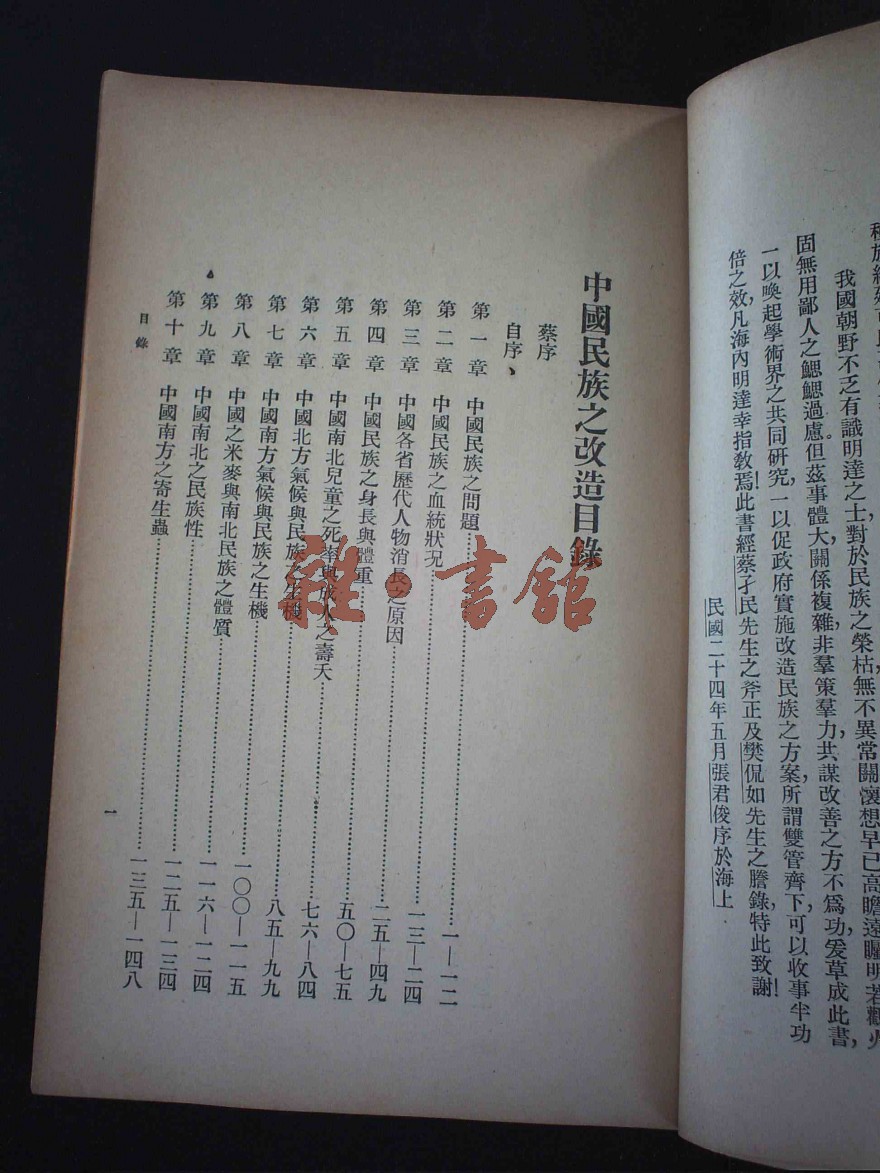 我國朝野不乏有識明達之士對於民族之榮枯,無不異常關懷想早已高瞻遠矚明若觀火
固無用鄙人之鰓鰓過慮。但茲事體大,關係複雜,非羣策羣力,共謀改善之方不爲功,爰草成此書,
一以喚起學術界之共同研究,一以促政府實施改造民族之方案,所謂雙管齊下,可以收事半功
倍之效,凡海內明達幸指敎焉!此書經蔡孑民先生之斧正及樊侃如先生之謄錄,特此致謝!
民國二十四年五月張君俊序於海上
中國民族之改造目錄
蔡序
自序
第一章 中國民族之問題……一—一二
第二章 中國民族之血統狀况……一三—二四
第三章 中國各省歷代人物消長之原因……二五—四九
第四章 中國民族之身長與體重……五〇—七五
第五章 中國南北兒童之死率與成人之壽夭……七六—八四
第六章 中國北方氣候與民族之生機……八五—九九
第七章 中國南方氣候與民族之生機……一〇〇—一一五
第八章 中國之米麥與南北民族之體質……一一六—一二四
第九章 中國南北之民族性……一二五—一三四
第十章 中國南方之寄生蟲……一三五—一四八
目錄
一
雜·書館